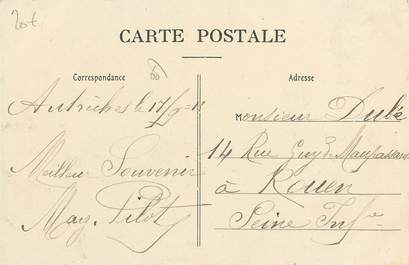 20€
CARTE POSTALE
Correspondance
Adresse
Autrèches le 17/9-11
Meilleur Souvenir
Mag. Pilot
Monsieur Dubé
14 Rue Guy de Maupassant
à Rouen
Seine Infre